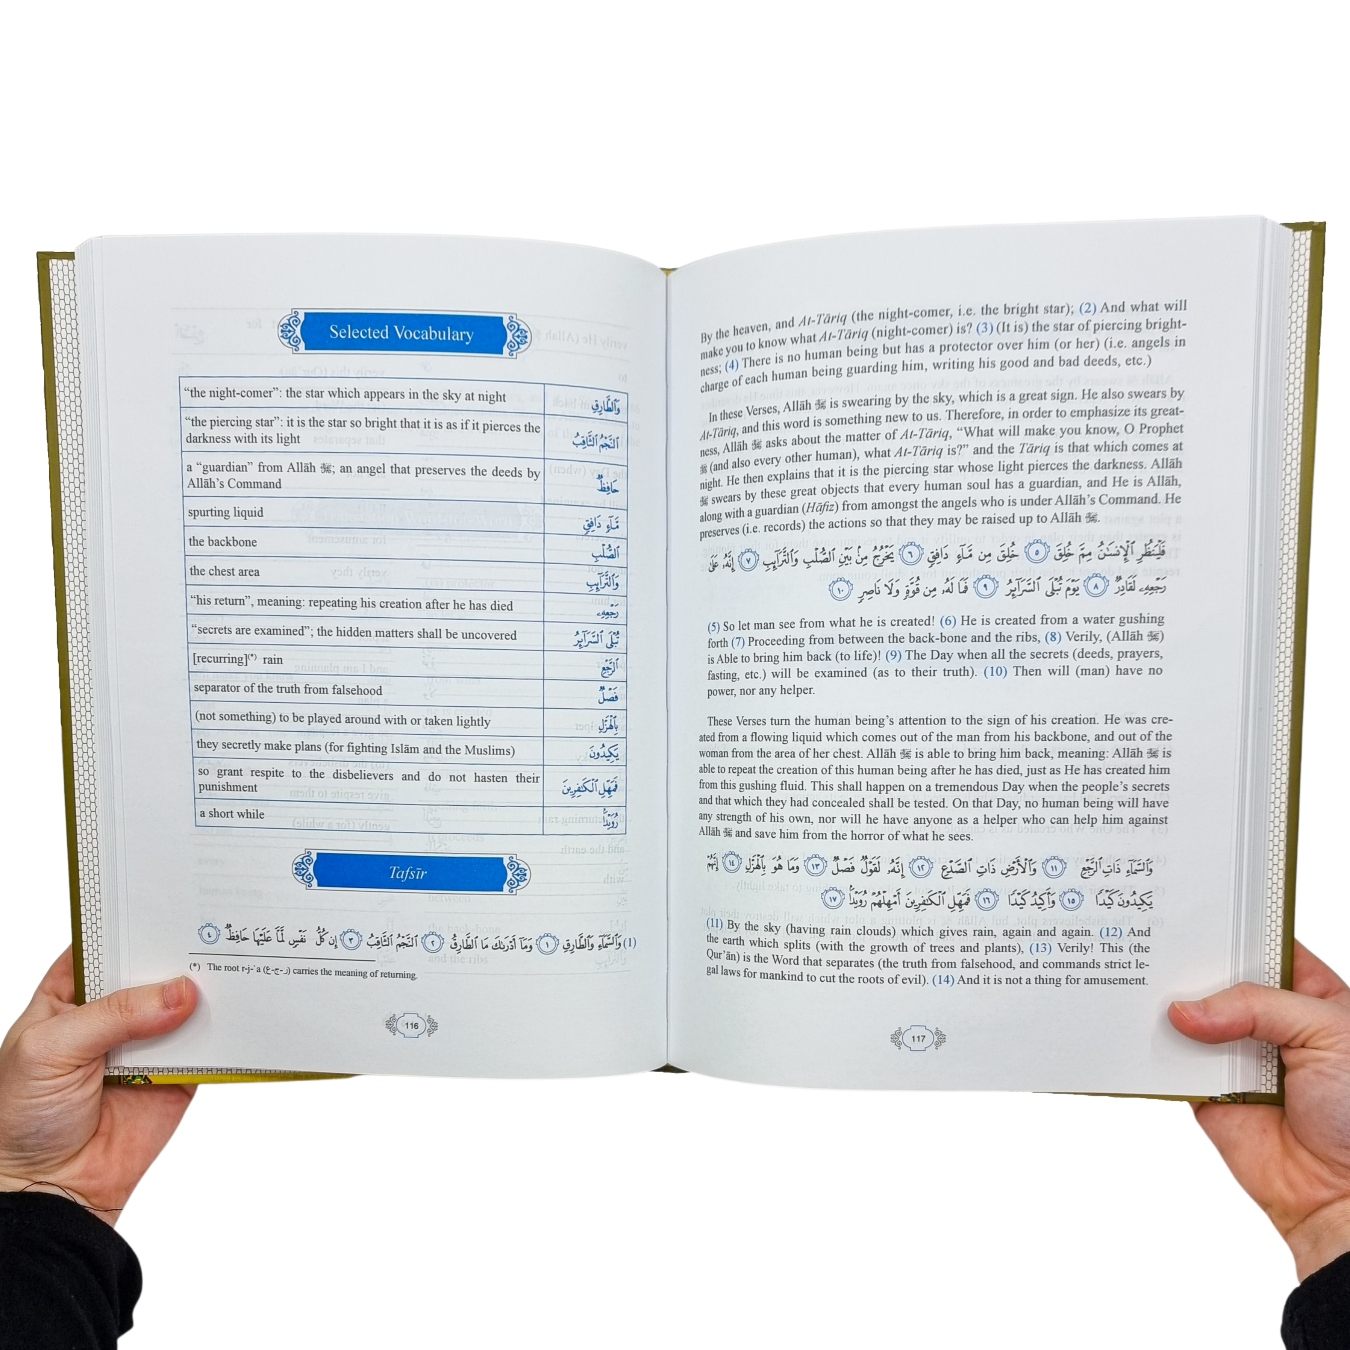 Selected Vocabulary
“the night-comer”: the star which appears in the sky at night وَٱلطَّارِقِ
“the piercing star”: it is the star so bright that it is as if it pierces the ٱلنَّجْمُ ٱلثَّاقِبُ
darkness with its light
a “guardian” from Allāh ﷻ; an angel that preserves the deeds by حَافِظٌ
Allāh’s Command
spurting liquid مَّآءٍ دَافِقٍ
the backbone ٱلصُّلْبِ
the chest area وَٱلتَّرَآئِبِ
“his return”, meaning: repeating his creation after he has died رَجْعِهِۦ
“secrets are examined”; the hidden matters shall be uncovered تُبْلَى ٱلسَّرَآئِرُ
[recurring](*) rain ٱلرَّجْعِ
separator of the truth from falsehood فَصْلٌ
(not something) to be played around with or taken lightly بِٱلْهَزْلِ
they secretly make plans (for fighting Islām and the Muslims) يَكِيدُونَ
so grant respite to the disbelievers and do not hasten their فَمَهِّلِ ٱلْكَٰفِرِينَ
punishment
a short while رُوَيْدًۢا
Tafsīr
(1) وَٱلسَّمَآءِ وَٱلطَّارِقِ ١ وَمَآ أَدْرَىٰكَ مَا ٱلطَّارِقُ ٢ ٱلنَّجْمُ ٱلثَّاقِبُ ٣ إِن كُلُّ نَفْسٍ لَّمَّا عَلَيْهَا حَافِظٌ ٤
(*) The root r-j-ʿa (ر-ج-ع) carries the meaning of returning.
116
By the heaven, and At-Tāriq (the night-comer, i.e. the bright star); (2) And what will
make you to know what At-Tāriq (night-comer) is? (3) (It is) the star of piercing bright-
ness; (4) There is no human being but has a protector over him (or her) (i.e. angels in
charge of each human being guarding him, writing his good and bad deeds, etc.)
In these Verses, Allāh ﷻ is swearing by the sky, which is a great sign. He also swears by
At-Tāriq, and this word is something new to us. Therefore, in order to emphasize its great-
ness, Allāh ﷻ asks about the matter of At-Tāriq, “What will make you know, O Prophet
ﷺ (and also every other human), what At-Tāriq is?” and the Tāriq is that which comes at
night. He then explains that it is the piercing star whose light pierces the darkness. Allāh
ﷻ swears by these great objects that every human soul has a guardian, and He is Allāh,
along with a guardian (Hāfiz) from amongst the angels who is under Allāh’s Command. He
preserves (i.e. records) the actions so that they may be raised up to Allāh ﷻ.
فَلْيَنظُرِ ٱلْإِنسَٰنُ مِمَّ خُلِقَ ٥ خُلِقَ مِن مَّآءٍ دَافِقٍ ٦ يَخْرُجُ مِنۢ بَيْنِ ٱلصُّلْبِ وَٱلتَّرَآئِبِ ٧ إِنَّهُۥ عَلَىٰ
رَجْعِهِۦ لَقَادِرٌ ٨ يَوْمَ تُبْلَى ٱلسَّرَآئِرُ ٩ فَمَا لَهُۥ مِن قُوَّةٍ وَلَا نَاصِرٍ ١٠
(5) So let man see from what he is created! (6) He is created from a water gushing
forth (7) Proceeding from between the back-bone and the ribs, (8) Verily, (Allāh ﷻ)
is Able to bring him back (to life)! (9) The Day when all the secrets (deeds, prayers,
fasting, etc.) will be examined (as to their truth). (10) Then will (man) have no
power, nor any helper.
These Verses turn the human being’s attention to the sign of his creation. He was cre-
ated from a flowing liquid which comes out of the man from his backbone, and out of the
woman from the area of her chest. Allāh ﷻ is able to bring him back, meaning: Allāh ﷻ is
able to repeat the creation of this human being after he has died, just as He has created him
from this gushing fluid. This shall happen on a tremendous Day when the people’s secrets
and that which they had concealed shall be tested. On that Day, no human being will have
any strength of his own, nor will he have anyone as a helper who can help him against
Allāh ﷻ and save him from the horror of what he sees.
وَٱلسَّمَآءِ ذَاتِ ٱلرَّجْعِ ١١ وَٱلْأَرْضِ ذَاتِ ٱلصَّدْعِ ١٢ إِنَّهُۥ لَقَوْلٌ فَصْلٌ ١٣ وَمَا هُوَ بِٱلْهَزْلِ ١٤ إِنَّهُمْ
يَكِيدُونَ كَيْدًا ١٥ وَأَكِيدُ كَيْدًا ١٦ فَمَهِّلِ ٱلْكَٰفِرِينَ أَمْهِلْهُمْ رُوَيْدًۢا ١٧
(11) By the sky (having rain clouds) which gives rain, again and again. (12) And
the earth which splits (with the growth of trees and plants), (13) Verily! This (the
Qur’ān) is the Word that separates (the truth from falsehood, and commands strict le-
gal laws for mankind to cut the roots of evil). (14) And it is not a thing for amusement.
117